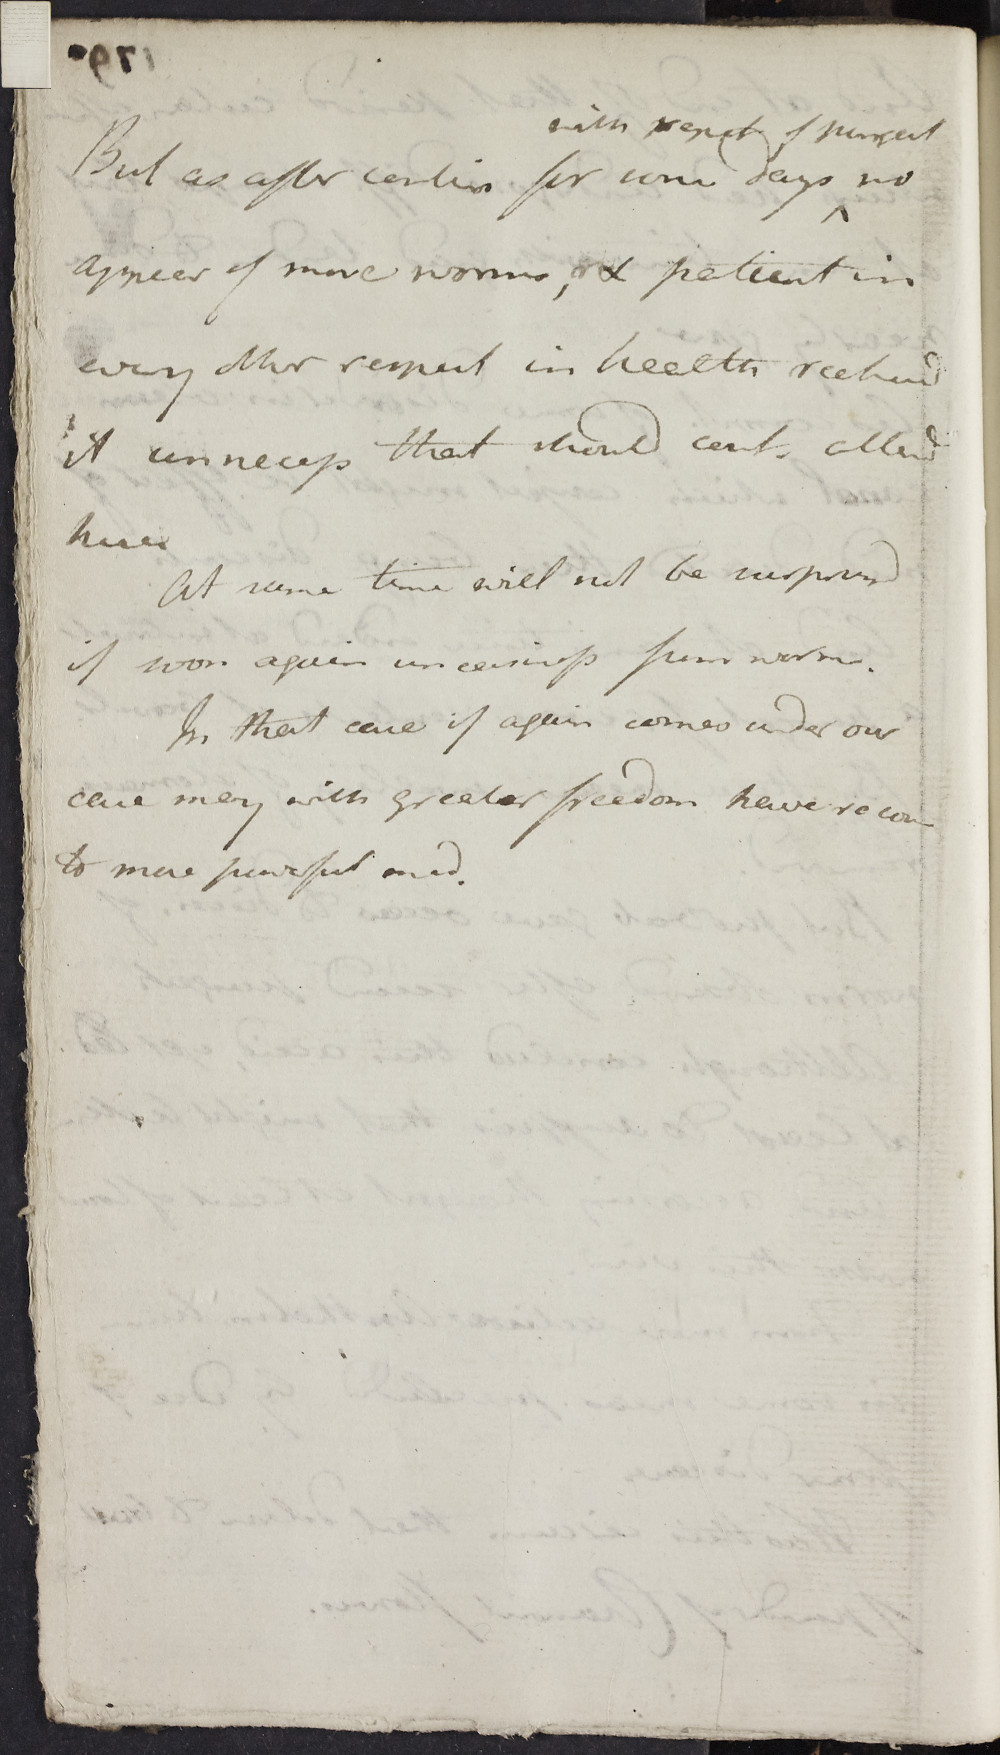 with repet. of purgat
But as after contin for some days no
appear of more worms, & patient in
every other respect in health reckond
it unnecess that should cont. attend
here
At same time will not be surprised
if soon again uneasiness from worm.
In that case if again comes under our
care may with greater freedom have recou
to more powerful med.